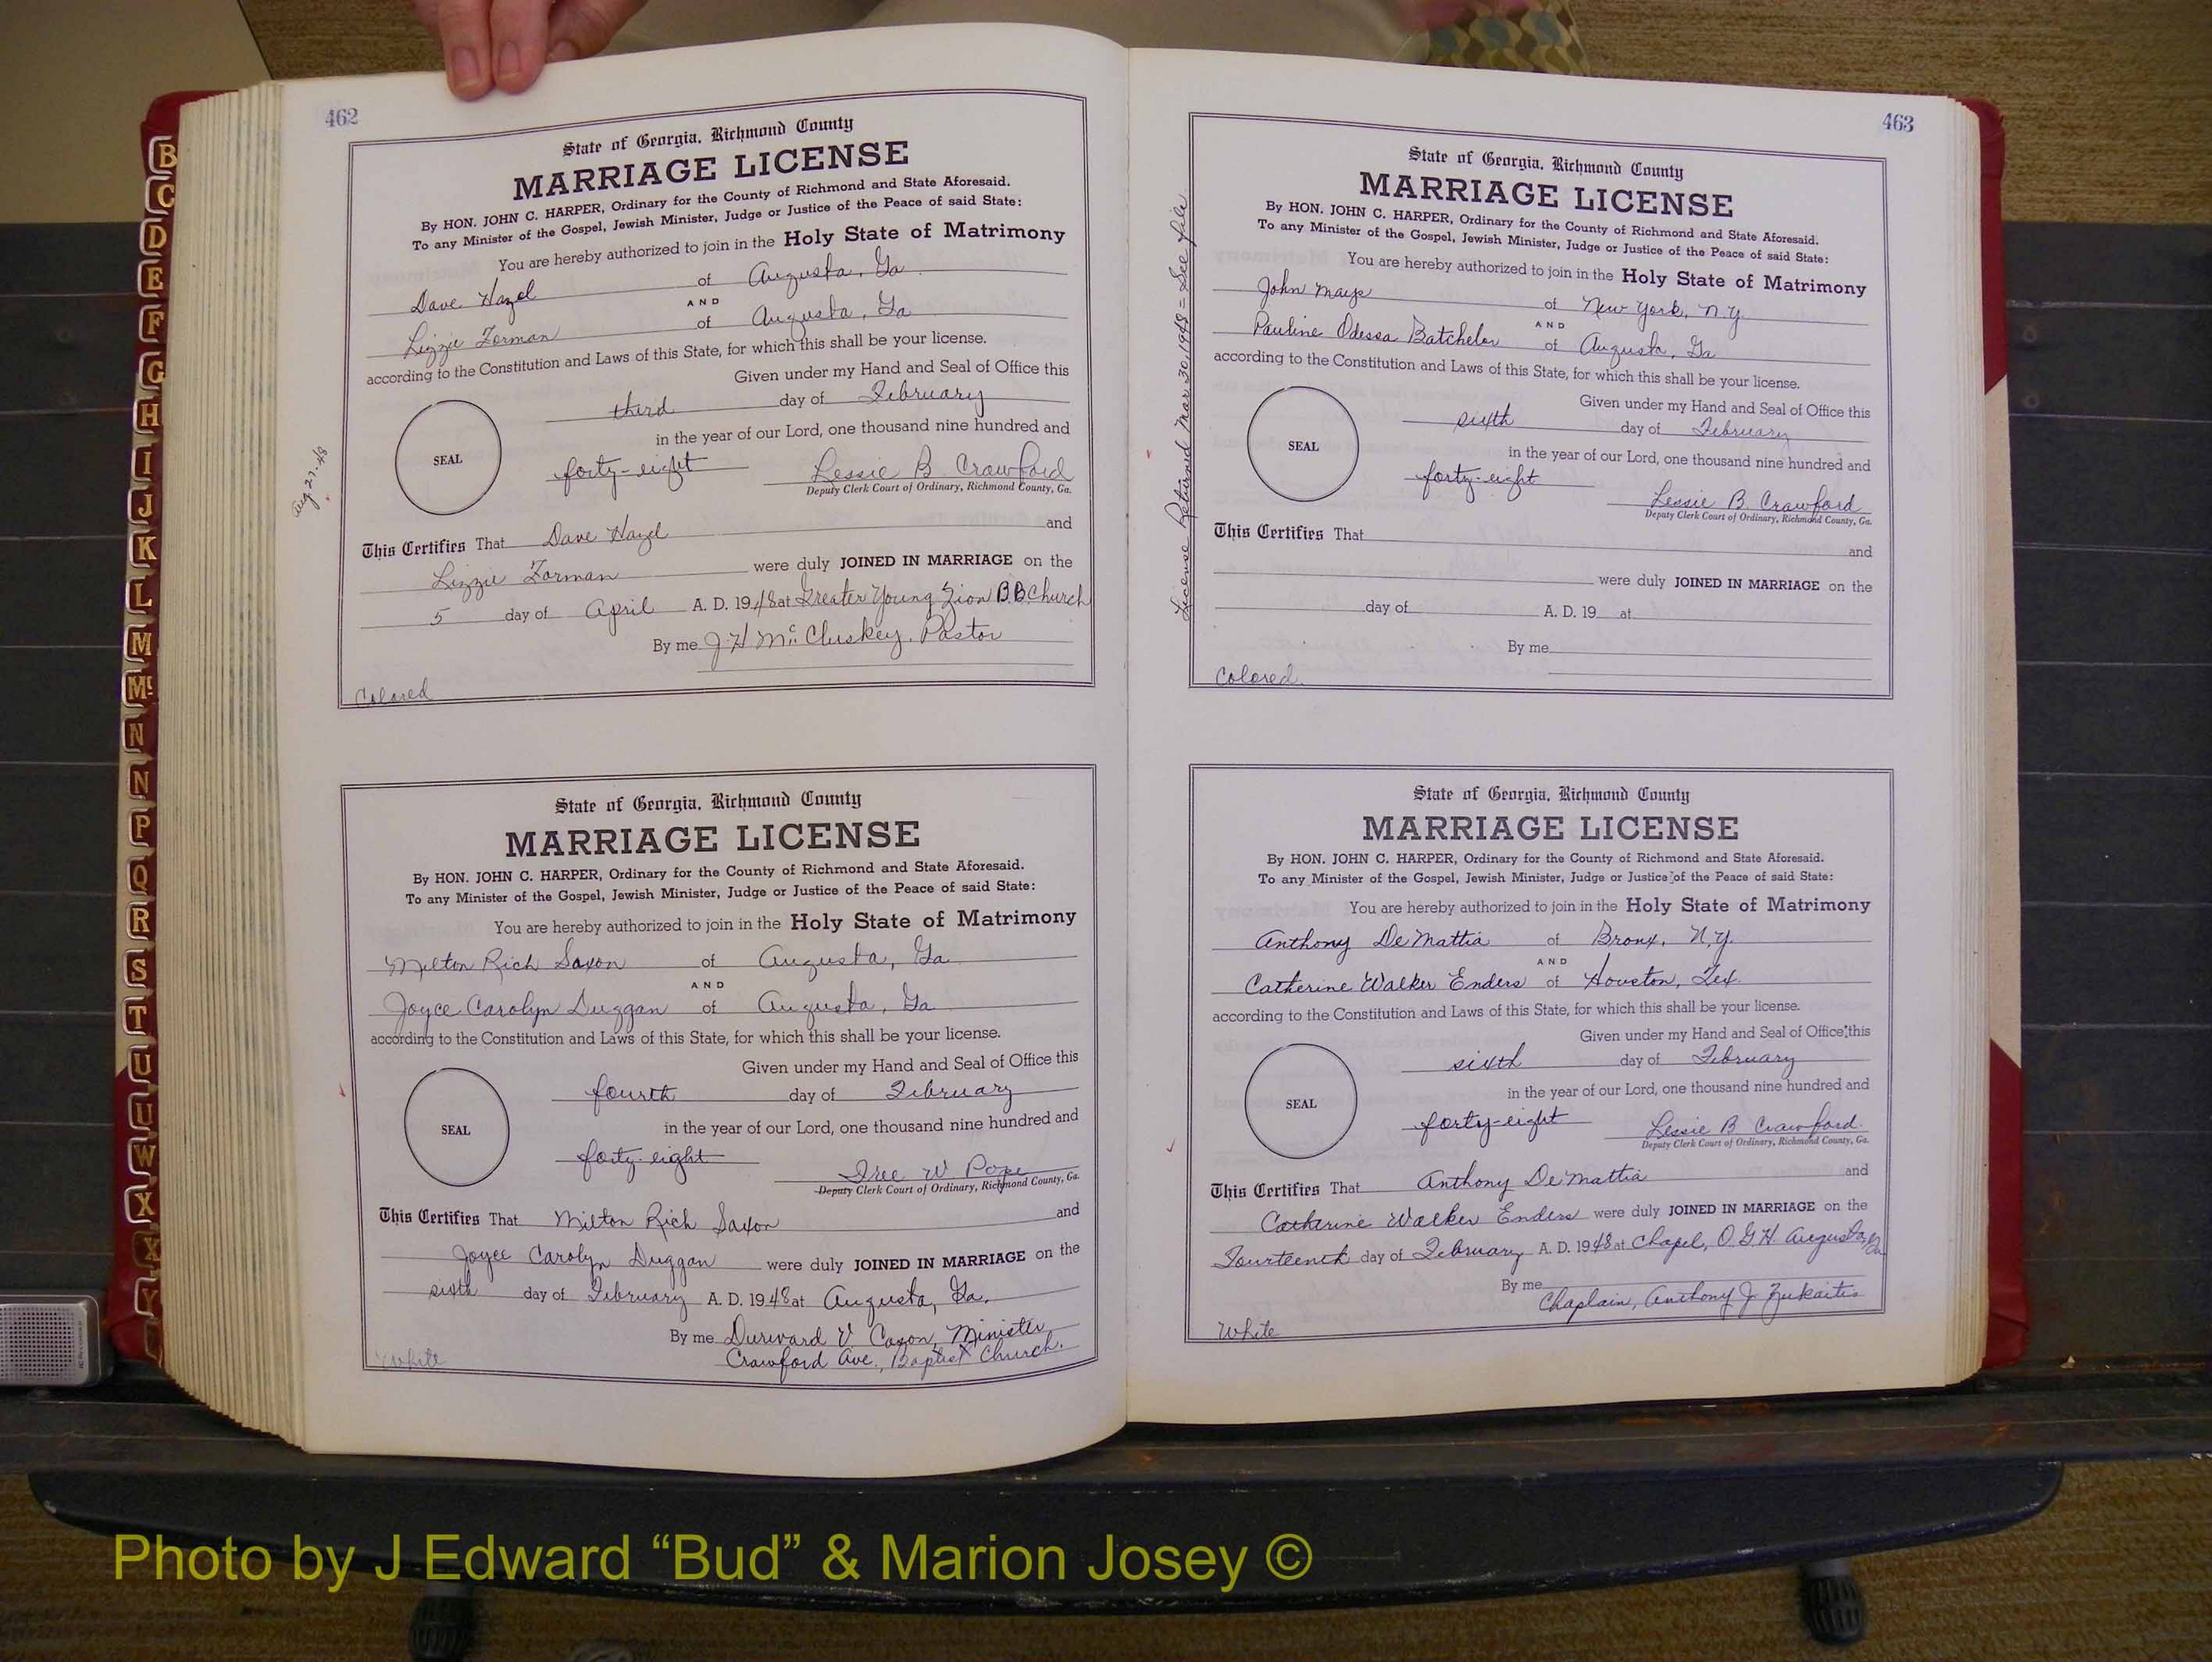 B
C
D
E
F
G
H
I
J
K
L
M
Mc
N
N
P
Q
R
S
T
U
U
W
X
X
Y
462
State of Georgia, Richmond County
MARRIAGE LICENSE
By HON. JOHN C. HARPER, Ordinary for the County of Richmond and State Aforesaid.
To any Minister of the Gospel, Jewish Minister, Judge or Justice of the Peace of said State:
You are hereby authorized to join in the Holy State of Matrimony
Dave Hazel of Augusta, Ga
AND
Lizzie Forman of Augusta, Ga
according to the Constitution and Laws of this State, for which this shall be your license.
Given under my Hand and Seal of Office this
third day of February
in the year of our Lord, one thousand nine hundred and
SEAL
forty-eight Lessie B Crawford
Deputy Clerk Court of Ordinary, Richmond County, Ga.
Aug 27-48
This Certifies That Dave Hazel and
Lizzie Forman were duly JOINED IN MARRIAGE on the
5 day of April A. D. 1948 at Greater Young Zion B.B. Church
By me J. H McCluskey, Pastor
Colored
State of Georgia, Richmond County
MARRIAGE LICENSE
By HON. JOHN C. HARPER, Ordinary for the County of Richmond and State Aforesaid.
To any Minister of the Gospel, Jewish Minister, Judge or Justice of the Peace of said State:
You are hereby authorized to join in the Holy State of Matrimony
Milton Rich Saxon of Augusta, Ga
AND
Joyce Carolyn Duggan of Augusta, Ga
according to the Constitution and Laws of this State, for which this shall be your license.
Given under my Hand and Seal of Office this
fourth day of February
in the year of our Lord, one thousand nine hundred and
SEAL
forty-eight Iree W. Pope
Deputy Clerk Court of Ordinary, Richmond County, Ga.
This Certifies That Milton Rich Saxon and
Joyce Carolyn Duggan were duly JOINED IN MARRIAGE on the
sixth day of February A. D. 1948 at Augusta, Ga.
By me Durward V Cason, Minister
Crawford Ave., Baptist Church.
White
463
License Returned Mar 30, 1948 - See file
State of Georgia, Richmond County
MARRIAGE LICENSE
By HON. JOHN C. HARPER, Ordinary for the County of Richmond and State Aforesaid.
To any Minister of the Gospel, Jewish Minister, Judge or Justice of the Peace of said State:
You are hereby authorized to join in the Holy State of Matrimony
John Mays of New York, N.Y.
AND
Pauline Odessa Batchelor of Augusta, Ga
according to the Constitution and Laws of this State, for which this shall be your license.
Given under my Hand and Seal of Office this
sixth day of February
in the year of our Lord, one thousand nine hundred and
SEAL
forty-eight Lessie B Crawford
Deputy Clerk Court of Ordinary, Richmond County, Ga.
This Certifies That and
were duly JOINED IN MARRIAGE on the
day of A. D. 19 at
By me
Colored.
State of Georgia, Richmond County
MARRIAGE LICENSE
By HON. JOHN C. HARPER, Ordinary for the County of Richmond and State Aforesaid.
To any Minister of the Gospel, Jewish Minister, Judge or Justice of the Peace of said State:
You are hereby authorized to join in the Holy State of Matrimony
Anthony DeMattia of Bronx, N.Y.
AND
Catherine Walker Enders of Houston, Tex.
according to the Constitution and Laws of this State, for which this shall be your license.
Given under my Hand and Seal of Office this
sixth day of February
in the year of our Lord, one thousand nine hundred and
SEAL
forty-eight Lessie B Crawford.
Deputy Clerk Court of Ordinary, Richmond County, Ga.
This Certifies That Anthony DeMattia and
Catherine Walker Enders were duly JOINED IN MARRIAGE on the
Fourteenth day of February A. D. 1948 at Chapel, O.G.H. Augusta, Ga
By me
Chaplain, Anthony J. Zukaitis
White
Photo by J Edward “Bud” & Marion Josey ©